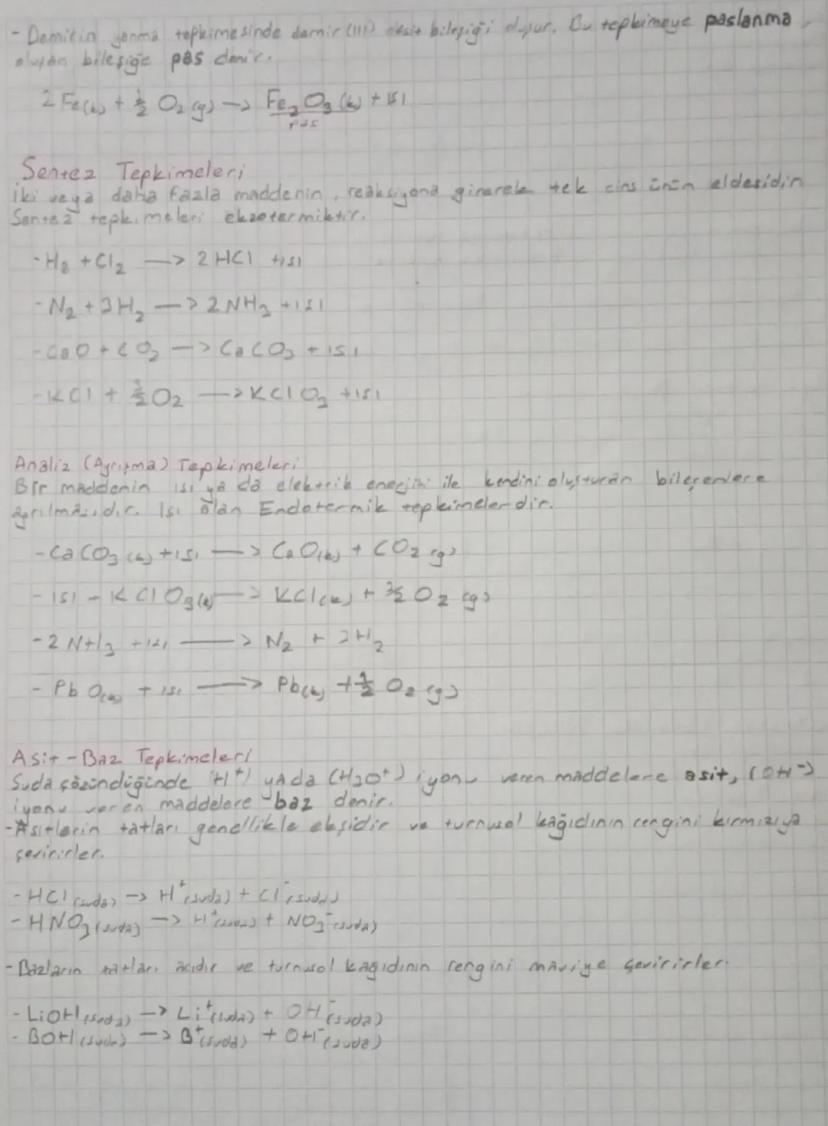 - Demirin yanma tepkimesinde demir (III) oksit bileşiği oluşur. Bu tepkimeye paslanma
oluşan bileşiğe pas denir.
2 Fe(k) + ½ O₂(g) → Fe₂O₃(k) + ısı
pas
Sentez Tepkimeleri
İki veya daha fazla maddenin, reaksiyona girerek tek cins ürün eldesidir
Sentez tepkimeleri ekzotermiktir.
- H₂ + Cl₂ → 2HCl + ısı
- N₂ + 3H₂ → 2NH₃ + ısı
- CaO + CO₂ → CaCO₃ + ısı
- KCl + 3/2 O₂ → KClO₃ + ısı
Analiz (Ayrışma) Tepkimeleri
Bir maddenin ısı ya da elektrik enerjisi ile kendini oluşturan bileşenlere
ayrılmasıdır. Isı alan Endotermik tepkimelerdir.
- CaCO₃(k) + ısı → CaO(k) + CO₂(g)
- ısı + KClO₃(k) → KCl(k) + 3/2 O₂(g)
- 2NH₃ + ısı → N₂ + 3H₂
- PbO(k) + ısı → Pb(k) + ½ O₂(g)
Asit-Baz Tepkimeleri
Suda çözündüğünde (H⁺) yada (H₃O⁺) iyonu veren maddelere asit, (OH⁻)
iyonu veren maddelere baz denir.
- Asitlerin tatları genellikle ekşidir ve turnusol kağıdının rengini kırmızıya
çevirirler.
- HCl(suda) → H⁺(suda) + Cl⁻(suda)
- HNO₃(suda) → H⁺(suda) + NO₃⁻(suda)
- Bazların tatları acıdır ve turnusol kağıdının rengini maviye çevirirler.
- LiOH(suda) → Li⁺(suda) + OH⁻(suda)
- BOH(suda) → B⁺(suda) + OH⁻(suda)